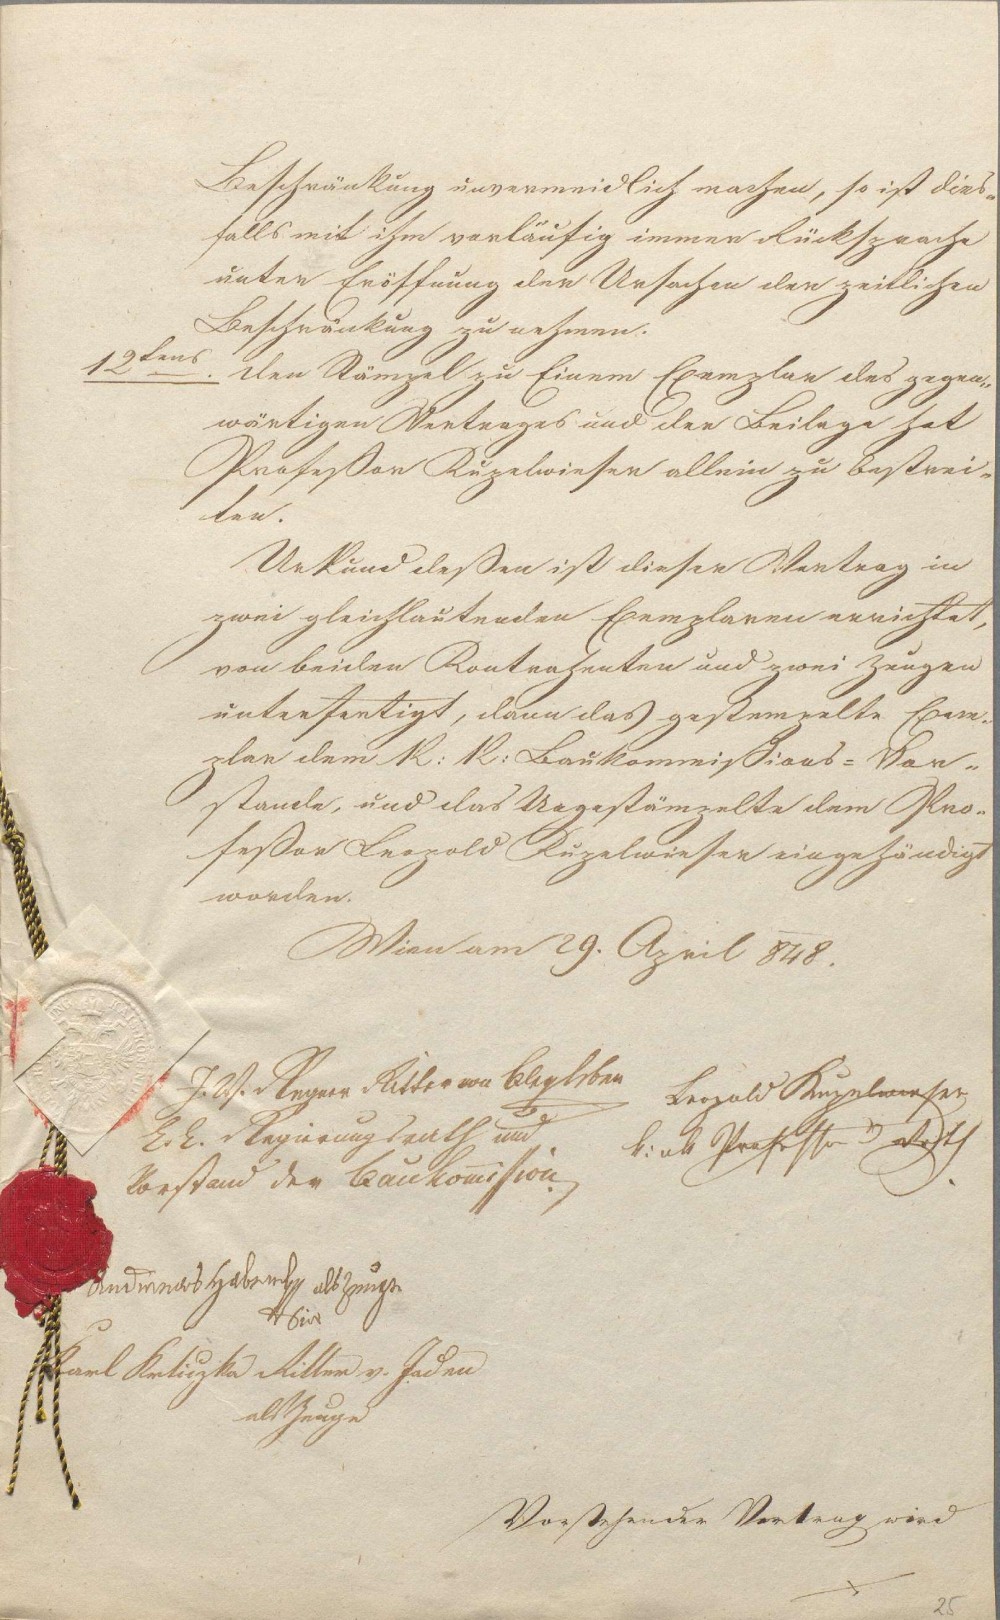 Beschränkung unvermeidlich machen, so ist dies=
falls mit ihm vorläufig immer Rücksprache
unter Eröffnung der Ursachen der zeitlichen
Beschränkung zu nehmen.
12tens. Den Stämpel zu Einem Exemplar des gegen=
wärtigen Vertrages und der Beilage hat
Profeßor Kupelwieser allein zu bestrei=
ten.
Urkund deßen ist dieser Vertrag in
zwei gleichlautenden Exemplaren errichtet,
von beiden Kontrahenten und zwei Zeugen
unterfertigt, dann das gestempelte Exem=
plar dem K: K: Baukommißions= Vor=
stande, und das Ungestämpelte dem Pro=
feßor Leopold Kupelwieser eingehändigt
worden.
Wien am 29. April 848.
Ritter von Bleyleben
k. k. Regierungsrath und
Vorstand der Baukommission
Leopold Kupelwieser
k: ak Professor
Andreas als Zeuge
Karl Ritter v. Jaden
als Zeuge
Vorstehender Vertrag wird
25